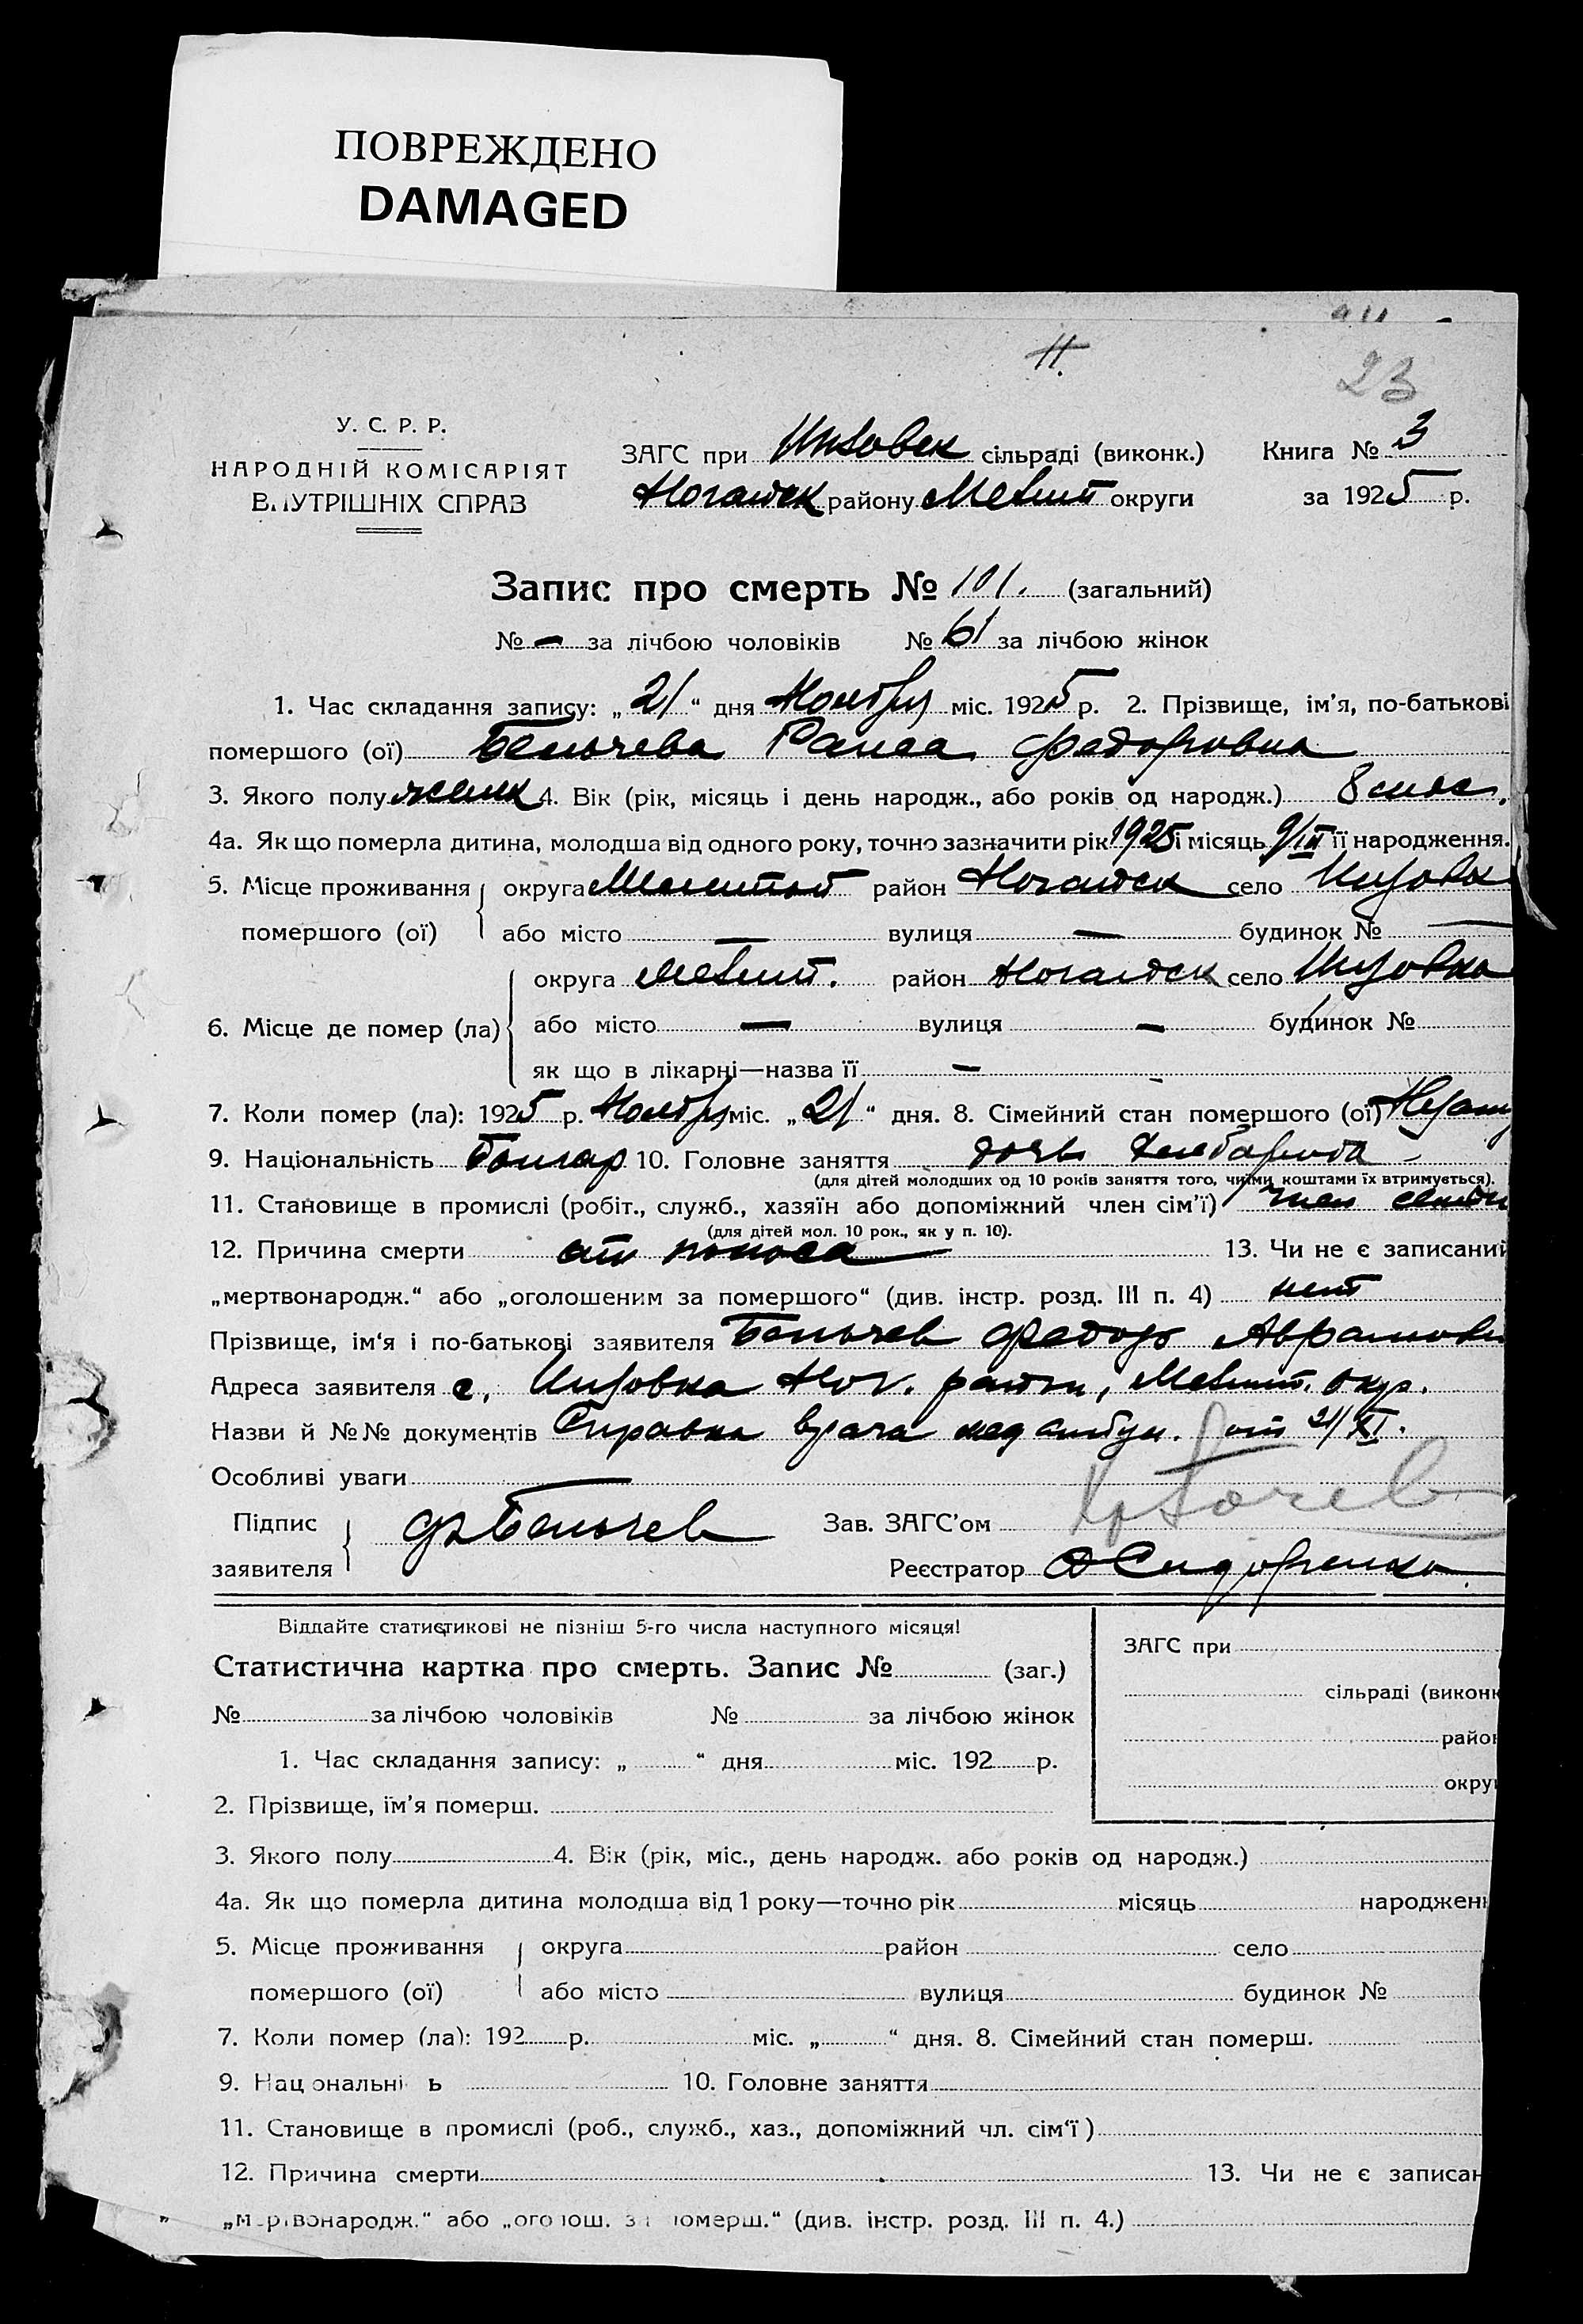 ПОВРЕЖДЕНО
DAMAGED
11.
23
У. С. Р. Р.
НАРОДНІЙ КОМІСАРІЯТ
ВНУТРІШНІХ СПРАВ
ЗАГС при Инзовск сільраді (виконк.)
Ногайск району Мелит округи
Книга № 3
за 1925 р.
Запис про смерть № 101. (загальний)
№ — за лічбою чоловіків № 61 за лічбою жінок
1. Час складання запису: „21“ дня Ноября міс. 1925 р. 2. Прізвище, ім’я, по-батькові
помершого (ої) Бельчева Раиса Федоровна
3. Якого полу женск 4. Вік (рік, місяць і день народж., або років од народж.) 8 мес.
4а. Як що померла дитина, молодша від одного року, точно зазначити рік 1925 і місяць 9/III її народження.
5. Місце проживання помершого (ої) округа Мелитоп район Ногайск село Инзовка
або місто — вулиця — будинок № —
6. Місце де помер (ла) округа Мелит. район Ногайск село Инзовка
або місто — вулиця — будинок №
як що в лікарні—назва її —
7. Коли помер (ла): 1925 р. Ноября міс. „21“ дня. 8. Сімейний стан помершого (ої)
9. Національність Болгар 10. Головне заняття дочь хлебороба -
(для дітей молодших од 10 років заняття того, чиїми коштами їх втримується).
11. Становище в промислі (робіт., служб., хазяїн або допоміжний член сім’ї) член семьи
(для дітей мол. 10 рок., як у п. 10).
12. Причина смерти от поноса 13. Чи не є записаний
„мертвонародж.“ або „оголошеним за помершого“ (див. інстр. розд. III п. 4) нет
Прізвище, ім‘я і по-батькові заявителя Бельчев Федор Аврамови
Адреса заявителя с. Инзовка Ног. район, Мелит. окр.
Назви й №№ документів Справка врача мед амбул. от 21/XI.
Особливі уваги —
Підпис заявителя Ф Бельчев Зав. ЗАГС’ом
Реєстратор Сидоренко
Віддайте статистикові не пізніш 5-го числа наступного місяця!
Статистична картка про смерть. Запис № (заг.)
№ за лічбою чоловіків № за лічбою жінок
1. Час складання запису: „ “ дня міс. 192 р.
2. Прізвище, їм’я померш.
ЗАГС при
сільраді (виконк
район
округ
3. Якого полу 4. Вік (рік, міс., день народж. або років од народж.)
4а. Як що померла дитина молодша від 1 року—точно рік місяць народжен
5. Місце проживання помершого (ої) округа район село
або місто вулиця будинок №
7. Коли помер (ла): 192 р. міс. „ “ дня. 8. Сімейний стан померш.
9. Нац ональні ь 10. Головне заняття
11. Становище в промислі (роб., служб., хаз., допоміжний чл. сім‘ї)
12. Причина смерти 13. Чи не є записан
„мертвонародж.“ або „оголош. за померш.“ (див. інстр. розд. III п. 4.)